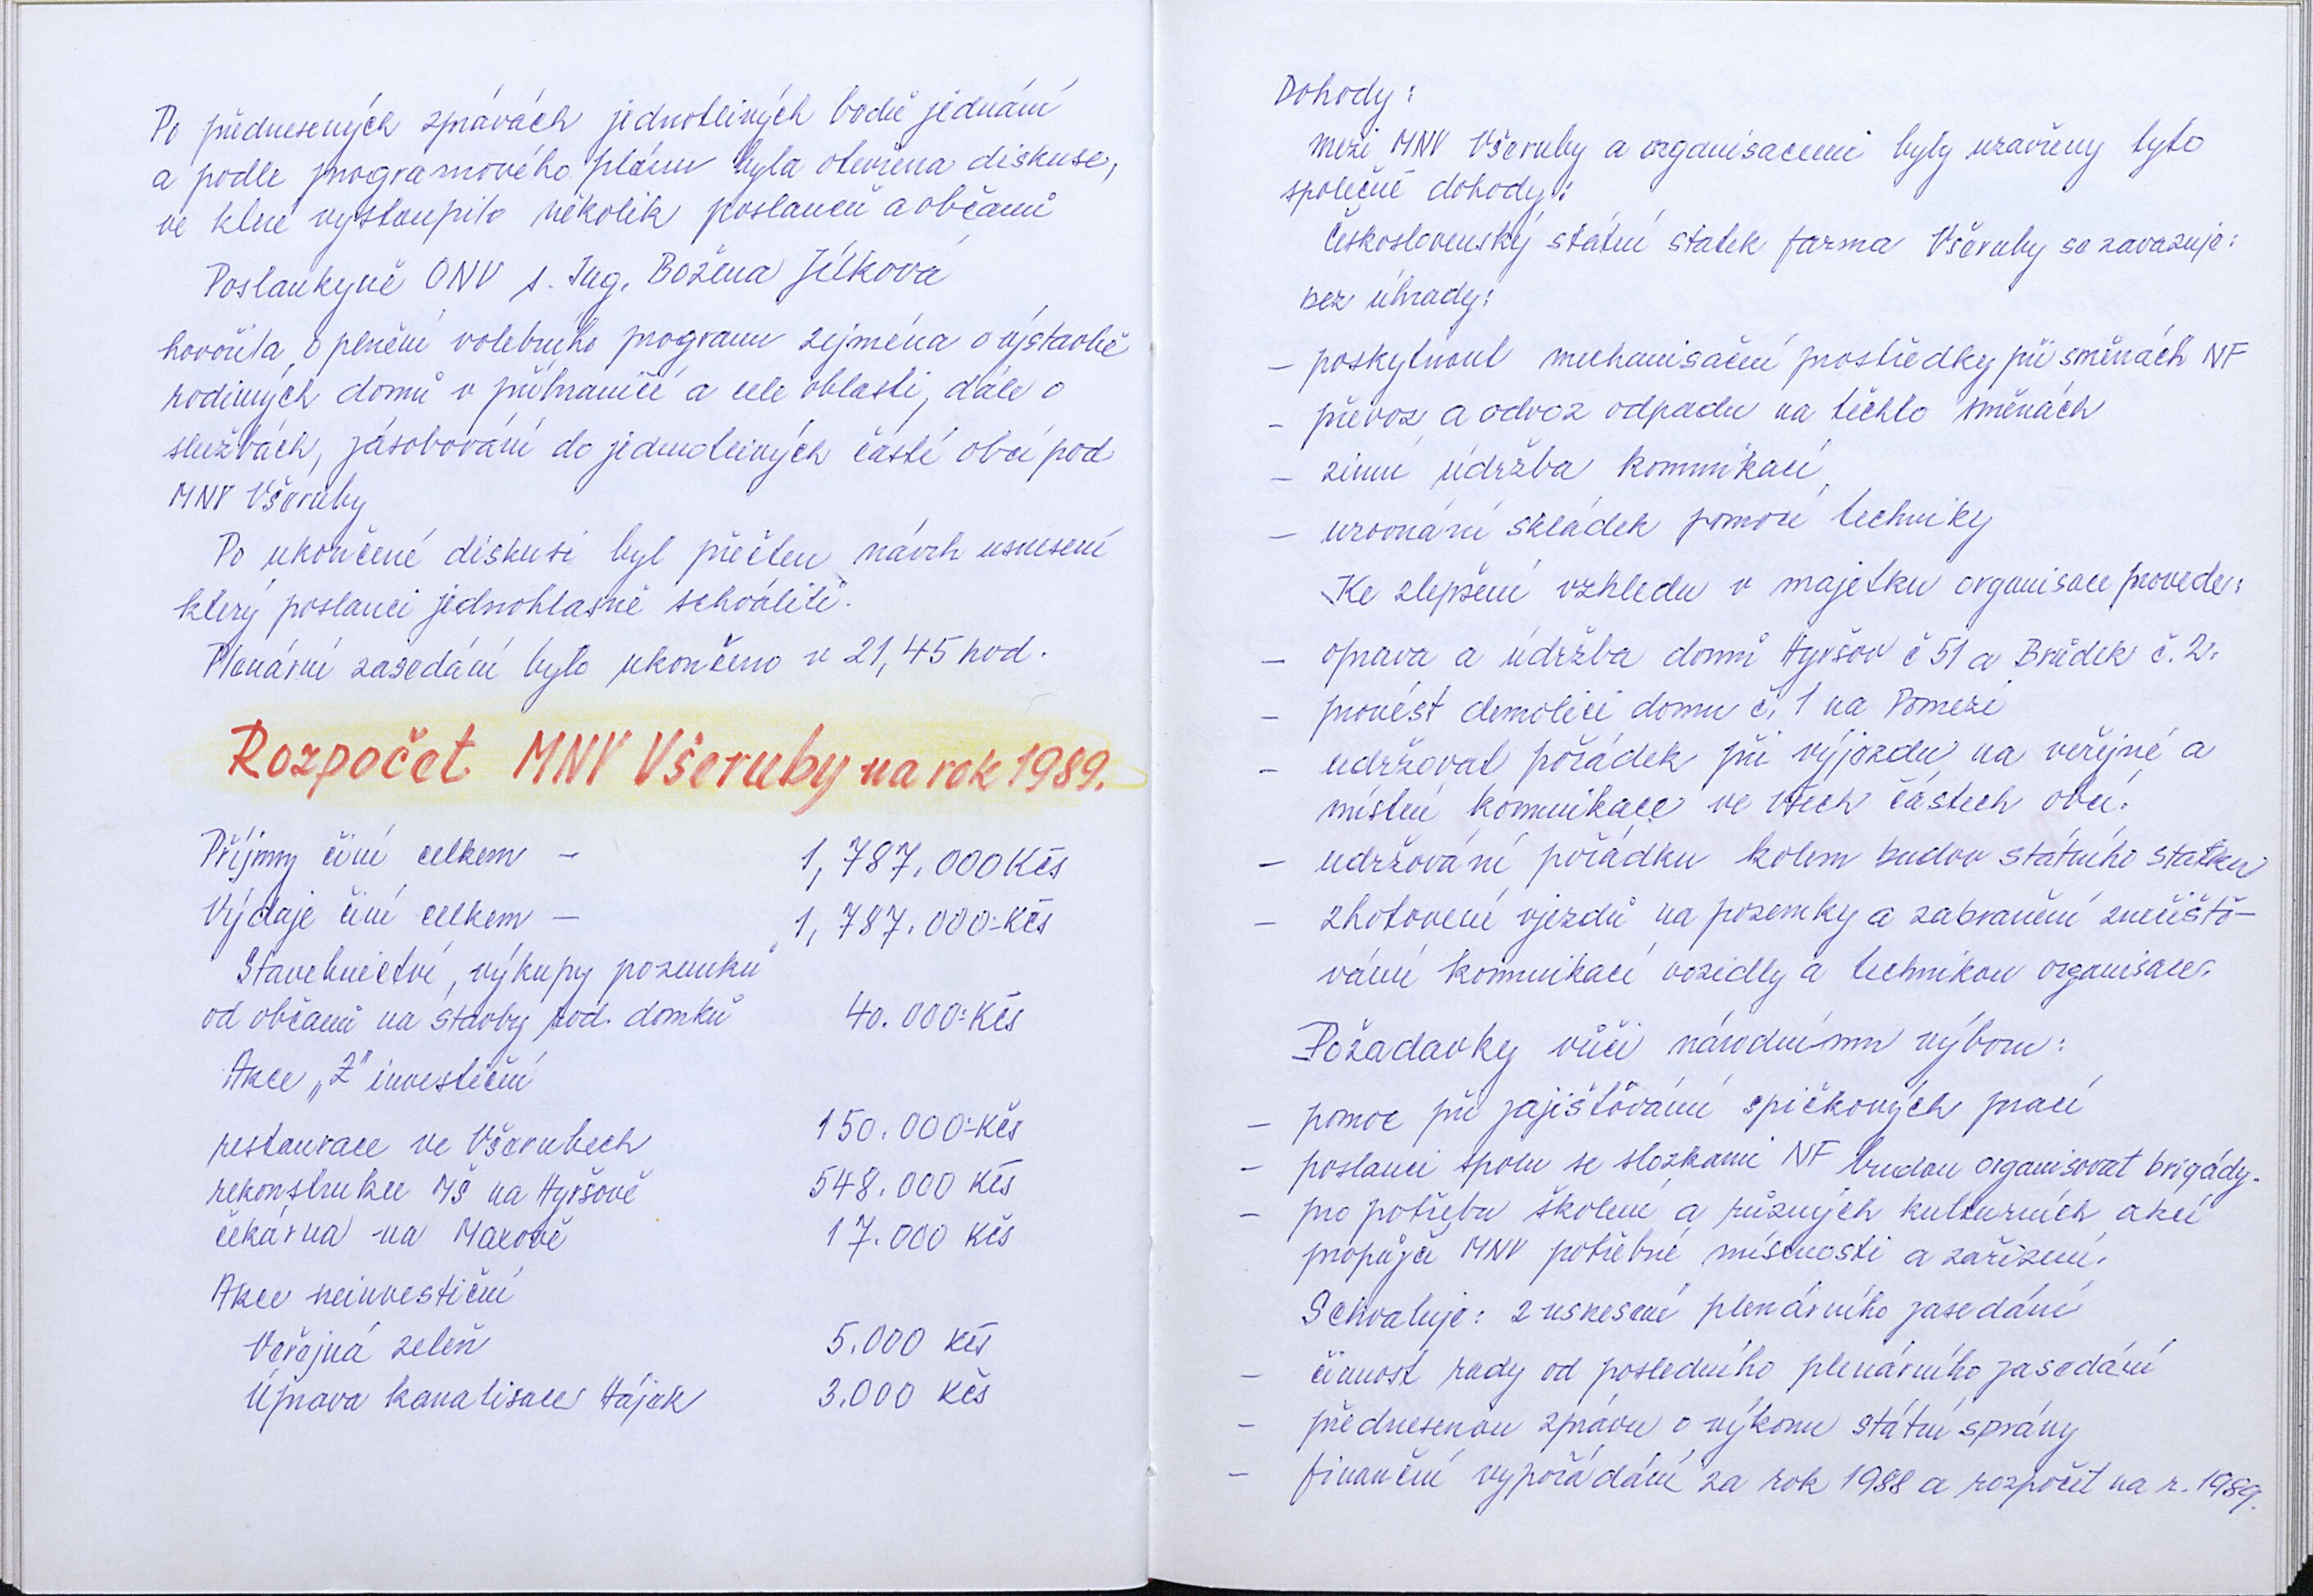 Po přednesených zprávách jednotlivých bodů jednání
a podle programového plánu byla otevřena diskuse,
ve které vystoupilo několik poslanců a občanů
Poslankyně ONV s. Ing. Božena Jílková
hovořila o plnění volebního programu zejména o výstavbě
rodiných domů v příhraničí a cele oblasti, dále o
službách, zásobování do jednotlivých částí obcí pod
MNV Všeruby
Po ukončené diskusi byl přečten návrh usnesení
který poslanci jednohlasně schválili.
Plenární zasedání bylo ukončeno v 21,45 hod.
Rozpočet MNV Všeruby na rok 1989.
Příjmy činí celkem – 1,787.000 Kčs
Výdaje činí celkem – 1,787.000=Kčs
Stavebnictví, výkupy pozemků
od občanů na stavby rod. domků 40.000=Kčs
Akce „Z" investiční
restaurace ve Všerubech 150.000=Kčs
rekonstrukce MŠ na Hyršově 548.000 Kčs
čekárna na Maxově 17.000 Kčs
Akce neinvestiční
Veřejná zeleň 5.000 Kčs
Úprava kanalisace Hájek 3.000 Kčs
Dohody:
mezi MNV Všeruby a organisacemi byly uzavřeny tyto
společné dohody:
Československý státní statek farma Všeruby se zavazuje:
bez úhrady:
– poskytnout mechanisační prostředky při směnách NF
– převoz a odvoz odpadu na těchto směnách
– zimní údržba komunikací
– urovnání skládek pomocí techniky
Ke zlepšení vzhledu v majetku organisace provede:
– oprava a údržba domů Hyršov č 51 a Brůdek č. 2.
– provést demolici domu č. 1 na Pomezí
– udržovat pořádek při výjezdu na veřejné a
místní komunikace ve všech částech obcí.
– udržování pořádku kolem budov státního statku
– zhotovení vjezdů na pozemky a zabranění znečišťo-
vání komunikací vozidly a technikou organisace.
Požadavky vůči národnímu výboru:
– pomoc při zajišťování špičkových prací
– poslanci spolu se složkami NF budou organisovat brigády.
– pro potřebu školení a různých kulturních akcí
propůjčí MNV potřebné místnosti a zařízení.
Schvaluje: z usnesení plenárního zasedání
– činnost rady od posledního plenárního zasedání
– přednesenou zprávu o výkonu státní správy
– finanční vypořádání za rok 1988 a rozpočet na r. 1989.